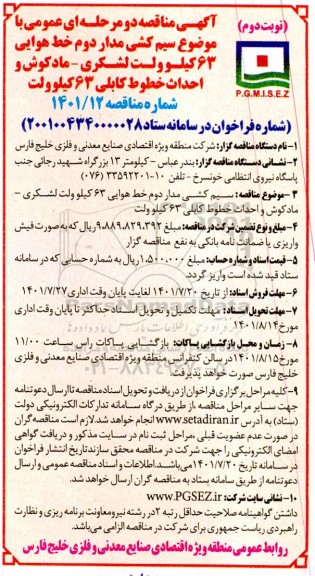 (نوبت دوم)
P.G.M.I.S.E.Z
آگهی مناقصه دو مرحله ای عمومی با
موضوع سیم کشی مدار دوم خط هوایی
۶۳ کیلو ولت لشکری - مادکوش و
احداث خطوط کابلی ۶۳ کیلو ولت
شماره مناقصه ۱۴۰۱/۱۲
(شماره فراخوان در سامانه ستاد ۲۰۰۱۰۰۴۳۴۰۰۰۰۰۲۸)
۱- نام دستگاه مناقصه گزار: شرکت منطقه ویژه اقتصادی صنایع معدنی و فلزی خلیج فارس
۲- نشانی دستگاه مناقصه گزار: بندرعباس - کیلومتر ۱۳ بزرگراه شهید رجائی جنب
پاسگاه نیروی انتظامی خونسرخ - تلفن ۱۰-۳۳۵۹۲۲۰۱ (۰۷۶)
۳- موضوع مناقصه: سیم کشی مدار دوم خط هوایی ۶۳ کیلو ولت لشکری -
مادکوش و احداث خطوط کابلی ۶۳ کیلو ولت
۴- مبلغ و نوع تضمین شرکت در مناقصه: مبلغ ۹،۸۸۹،۸۲۹،۳۹۲ ریال که به صورت فیش
واریزی یا ضمانت نامه بانکی به نفع مناقصه گزار
۵- قیمت اسناد و شماره حساب: مبلغ ۱،۵۰۰،۰۰۰ ریال به شماره حسابی که در سامانه
ستاد قید شده است واریز گردد.
۶- مهلت فروش اسناد: از تاریخ ۱۴۰۱/۷/۲۰ لغایت پایان وقت اداری ۱۴۰۱/۷/۲۷
۷- مهلت تحویل اسناد: مهلت تکمیل و تحویل اسناد حداکثر تا پایان وقت اداری
مورخ ۱۴۰۱/۸/۱۴
۸- زمان و محل بازگشایی پاکات: بازگشایی پاکات راس ساعت ۱۱/۰۰
مورخ ۱۴۰۱/۸/۱۵ در سالن کنفرانس منطقه ویژه اقتصادی صنایع معدنی و فلزی
خلیج فارس صورت خواهد پذیرفت.
۹- کلیه مراحل برگزاری فراخوان از دریافت و تحویل اسناد مناقصه تا ارسال دعوتنامه
جهت سایر مراحل مناقصه، از طریق درگاه سامانه تدارکات الکترونیکی دولت
(ستاد) به آدرس www.setadiran.ir انجام خواهد شد. لازم است مناقصه گران
در صورت عدم عضویت قبلی، مراحل ثبت نام در سایت مذکور و دریافت گواهی
امضای الکترونیکی را جهت شرکت در مناقصه محقق سازند تاریخ انتشار فراخوان
در سامانه تاریخ ۱۴۰۱/۷/۲۰ می باشد. اطلاعات و اسناد مناقصه عمومی و ارسال
دعوتنامه از طریق سامانه ستاد به مناقصه گران ارسال خواهد شد.
۱۰- نشانی سایت شرکت: www.PGSEZ.ir
داشتن گواهینامه صلاحیت حداقل رتبه ۲ در رشته نیرو و معاونت برنامه ریزی و نظارت
راهبردی ریاست جمهوری برای شرکت در مناقصه الزامی می باشد.
روابط عمومی منطقه ویژه اقتصادی صنایع معدنی و فلزی خلیج فارس